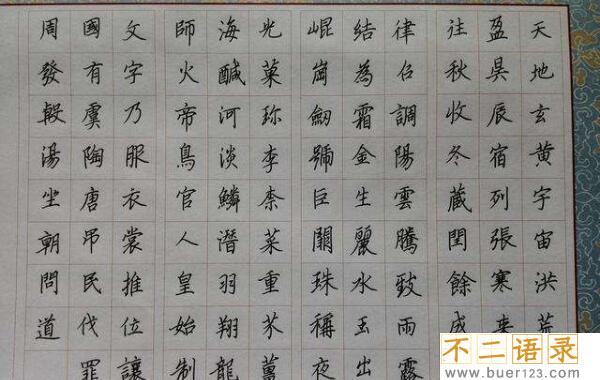 天地玄黃宇宙洪荒
盈昃辰宿列張寒來
往秋收冬藏閏餘成
律吕調陽雲騰致雨露
結為霜金生麗水玉出
崐崗劒號巨闕珠稱夜
光菓珍李柰菜重芥薑
海鹹河淡鱗潛羽翔龍
師火帝鳥官人皇始制
文字乃服衣裳推位讓
國有虞陶唐吊民伐罪
周發殷湯坐朝問道
不二语录
www.buer123.com